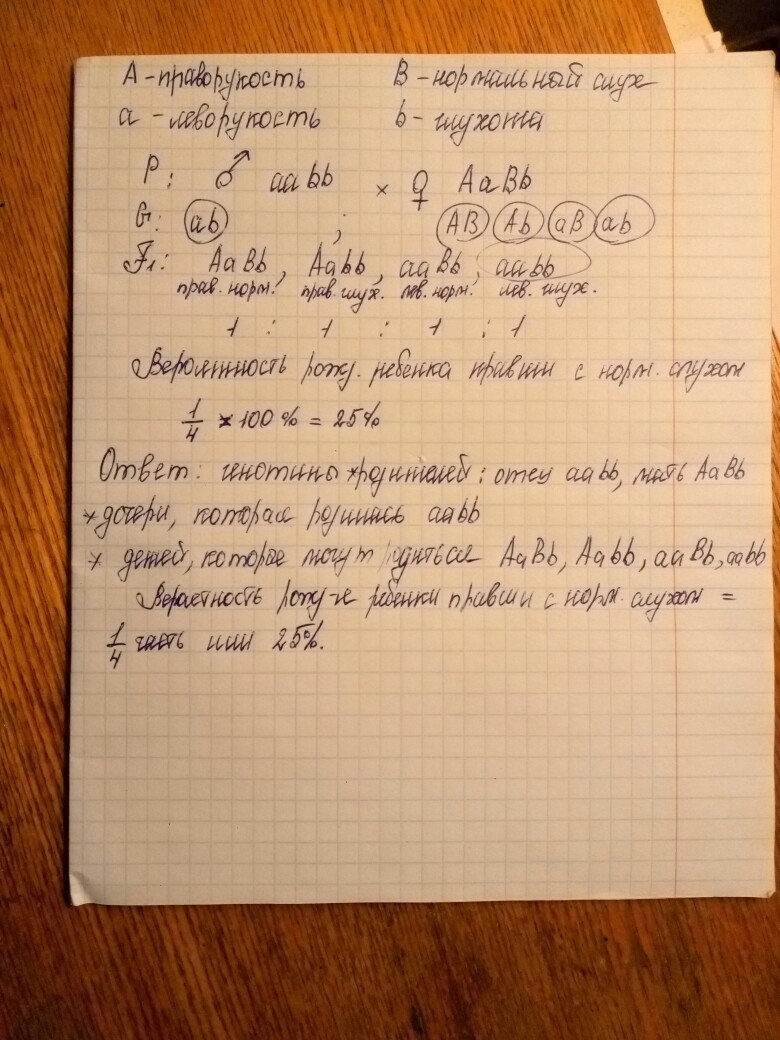 A - праворукость B - нормальный слух
a - леворукость b - глухота
P: ♂ aabb × ♀ AaBb
G: ab ; AB Ab aB ab
F1: AaBb, Aabb, aaBb, aabb
прав. норм. прав. глух. лев. норм. лев. глух.
1 : 1 : 1 : 1
Вероятность рожд. ребенка правши с норм. слухом
1/4 × 100% = 25%
Ответ: генотипы *родителей: отец aabb, мать AaBb
* дочери, которая родилась aabb
* детей, которые могут родиться AaBb, Aabb, aaBb, aabb
Вероятность рожд-я ребенка правши с норм. слухом =
1/4 часть или 25%.